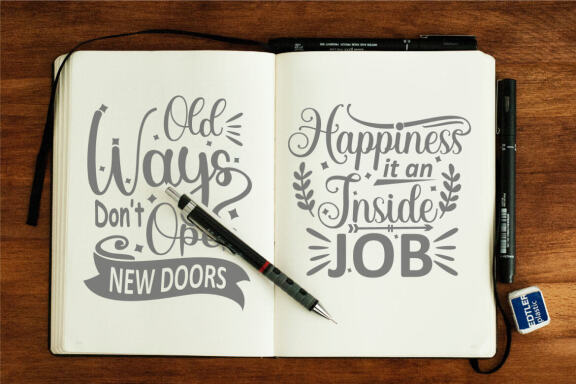 Old
Ways
Don't Open
NEW DOORS
Happiness
it an
Inside
JOB
EDTLER
plastic